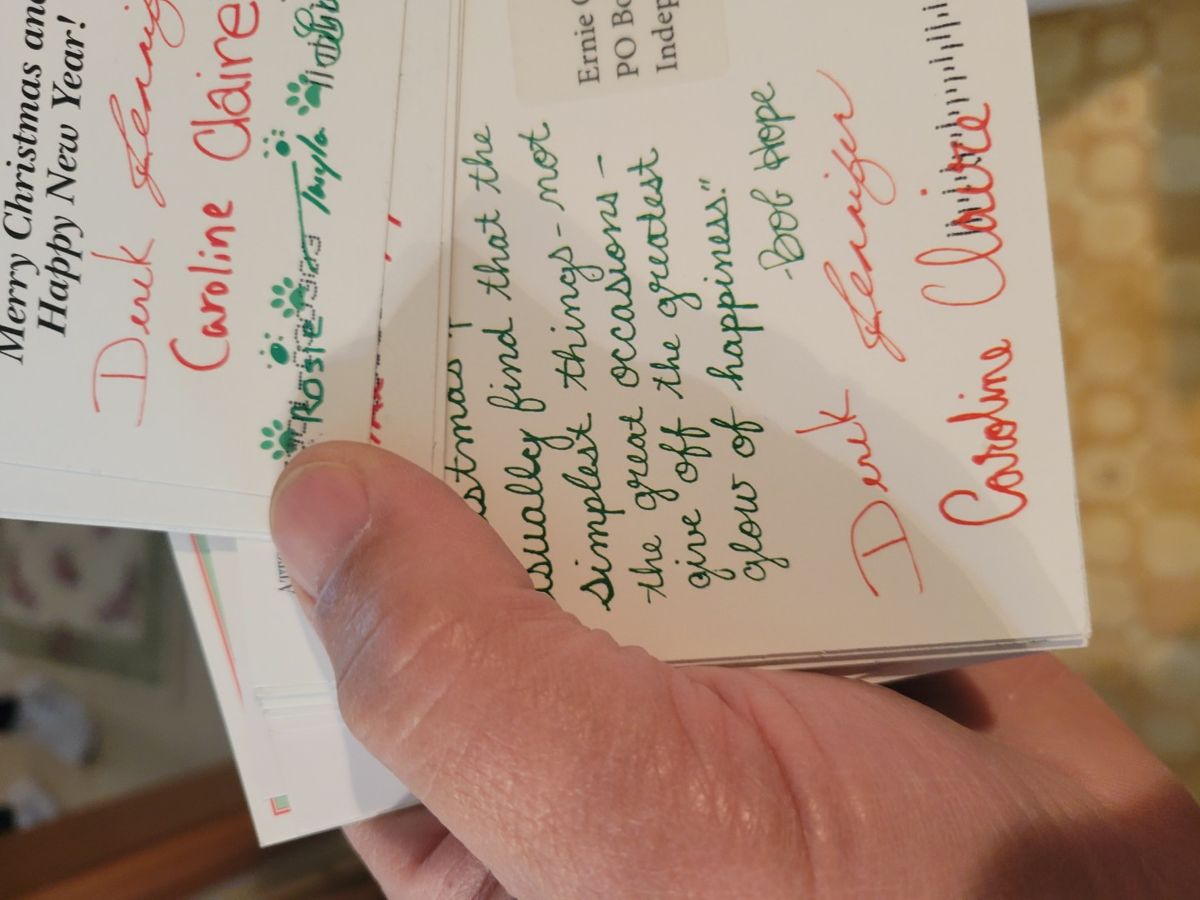 Merry Christmas and
Happy New Year!
Derek
Caroline Claire
Rosie Twyla
Ernie
PO Bo
Indep
stmas!
usually find that the
simplest things - not
the great occasions -
give off the greatest
glow of happiness."
-Bob Hope
Derek Jennifer
Caroline Claire